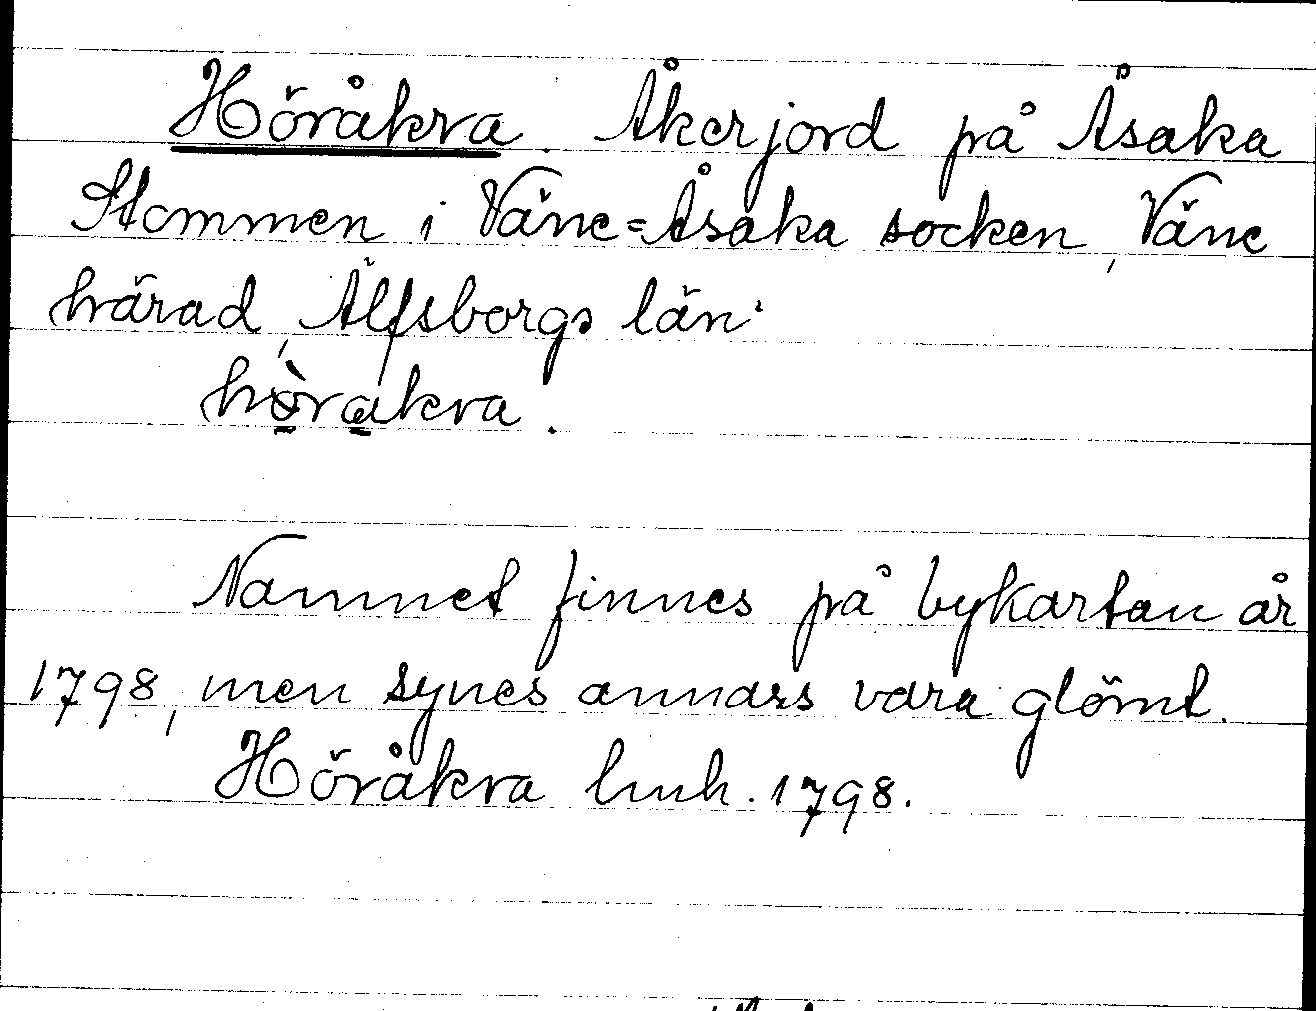 Höråkra. Åkerjord på Åsaka
Stommen i Väne=Åsaka socken, Väne
härad, Älfsborgs län.
hòrakra.
Namnet finnes på bykartan år
1798, men synes annars vara glömt.
Höråkra lmh. 1798.